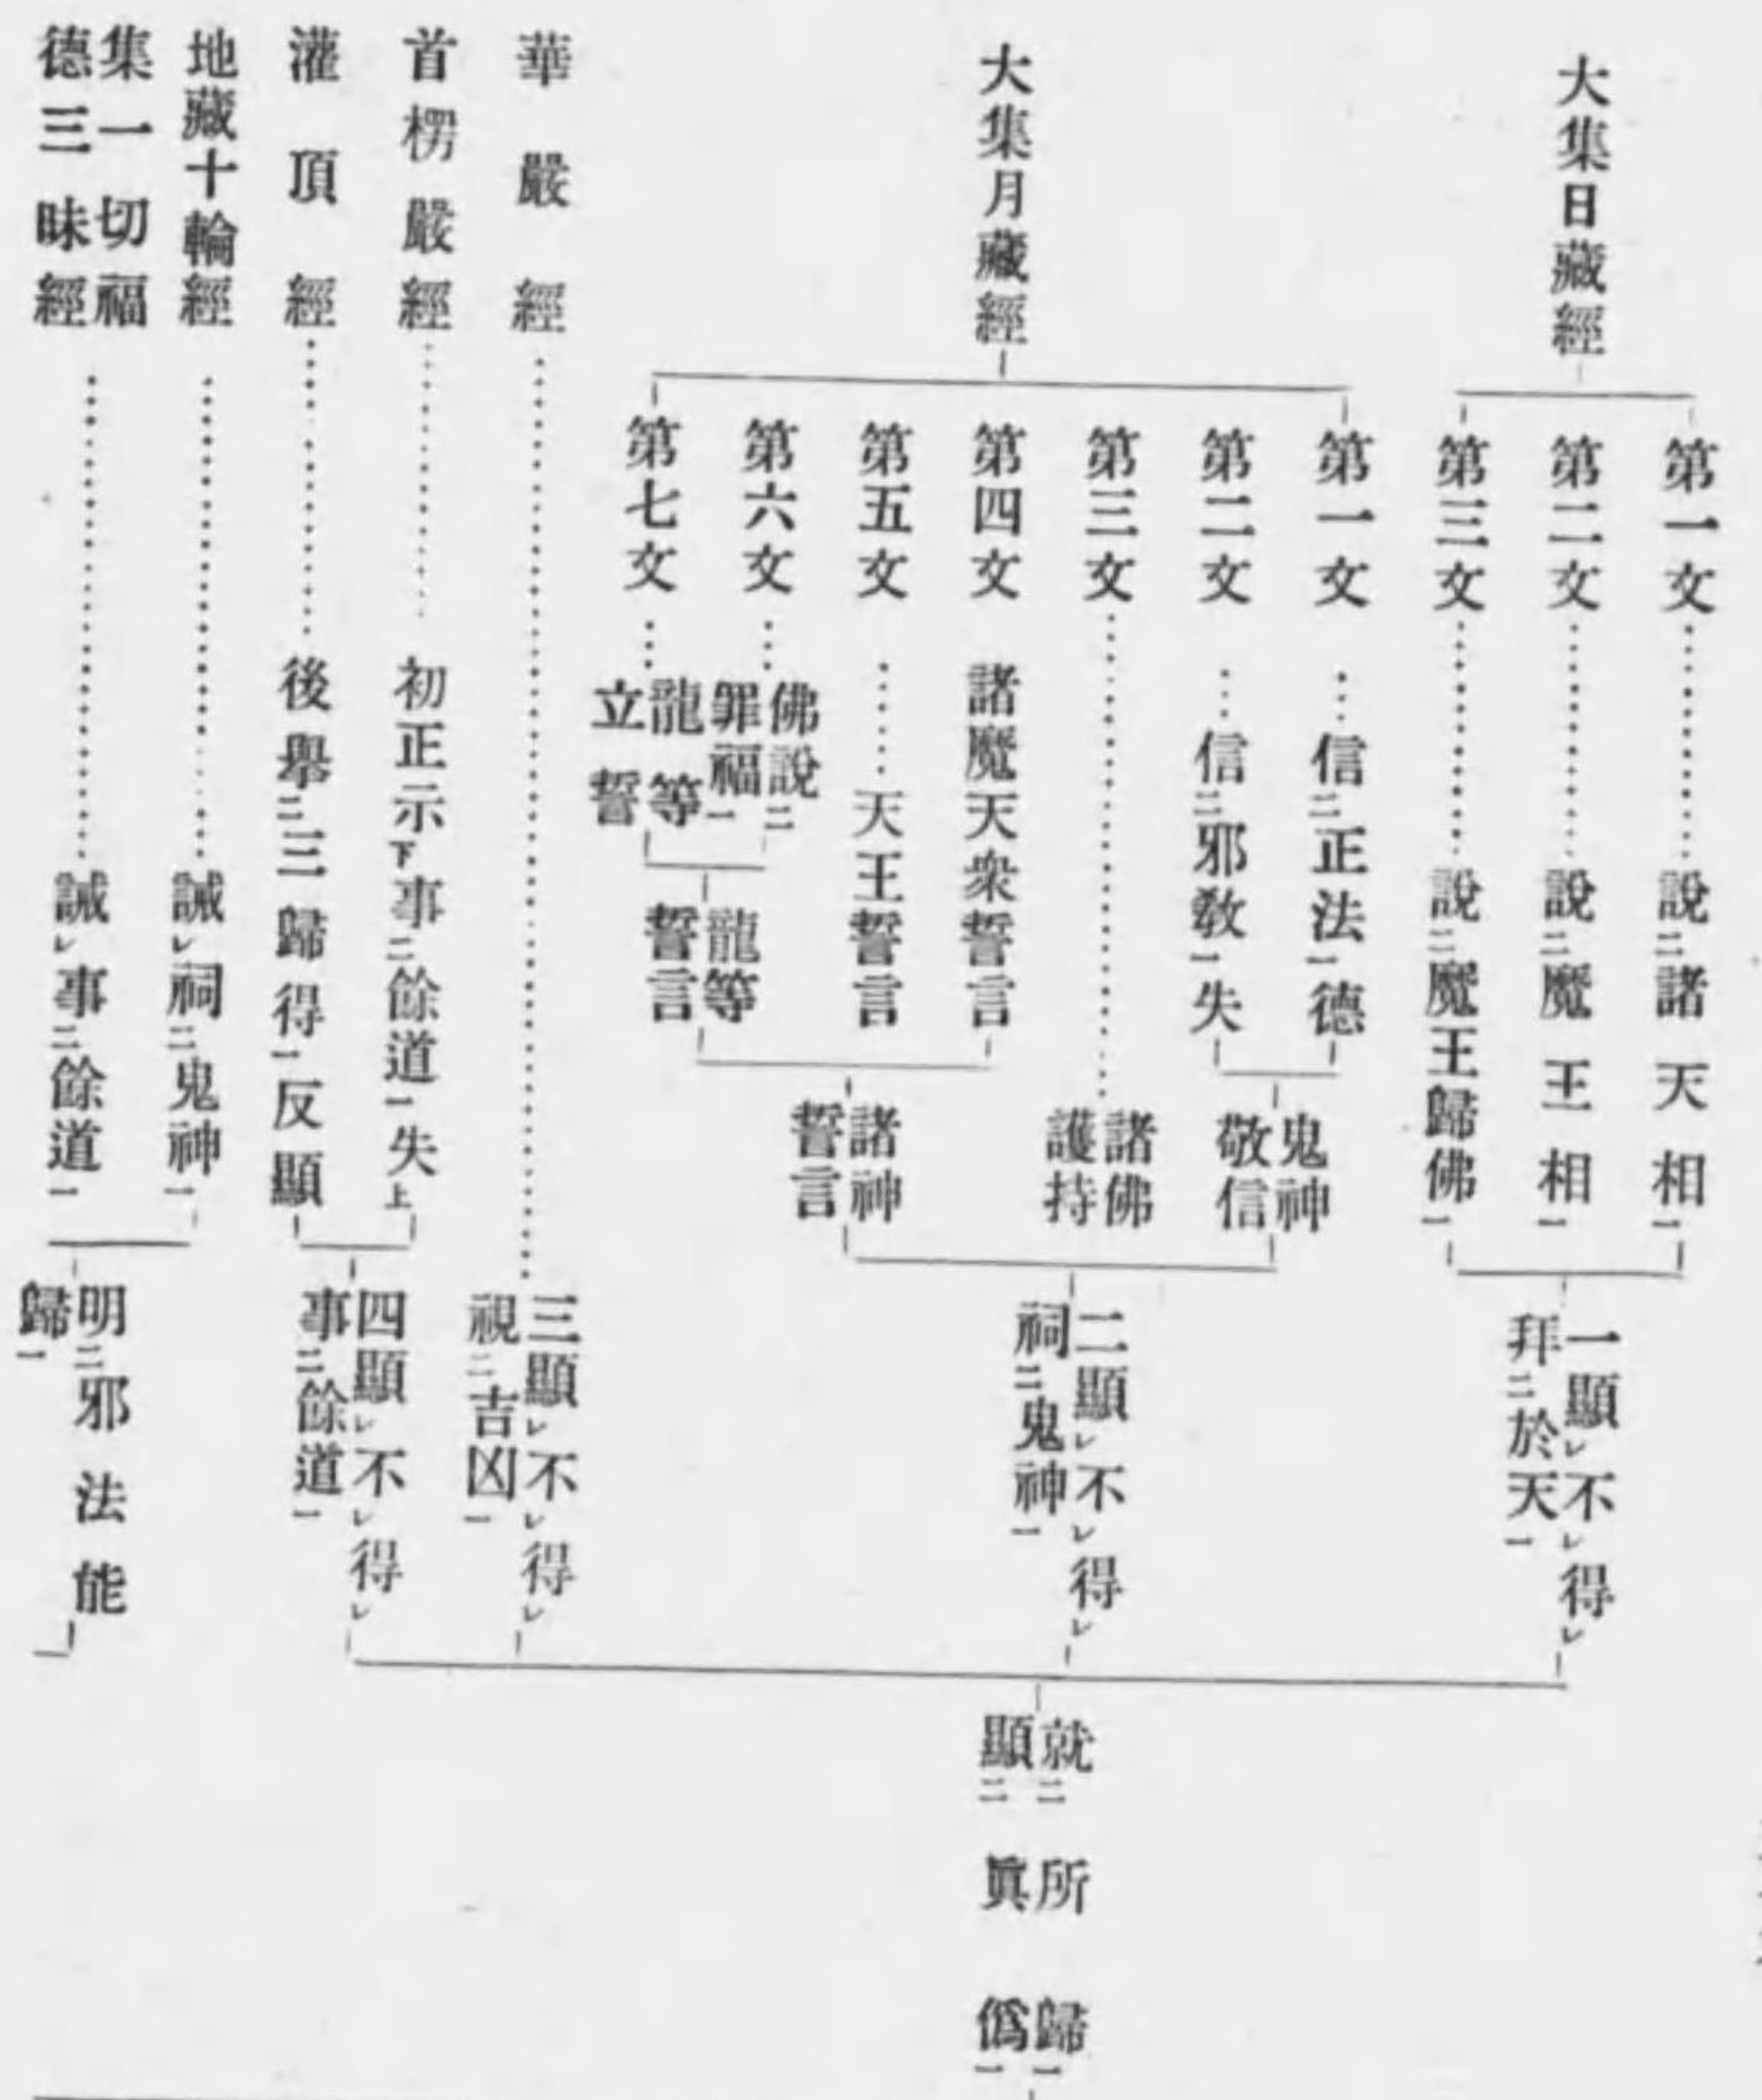 大集日藏經
第一文
說㆓諸天相㆒
第二文
說㆓魔王相㆒
第三文
說㆓魔王歸佛㆒
一顯㆑不㆑得㆑
拜㆓於天㆒
大集月藏經
第一文
信㆓正法㆒德
第二文
信㆓邪敎㆒失
鬼神
敬信
第三文
諸佛
護持
第四文
諸魔天衆誓言
第五文
天王誓言
第六文
佛說㆓
罪福㆒
第七文
龍等
立誓
龍等
誓言
諸神
誓言
二顯㆑不㆑得㆑
祠㆓鬼神㆒
華嚴經
三顯㆑不㆑得㆑
視㆓吉凶㆒
首楞嚴經
初正示㆘事㆓餘道㆒失㆖
灌頂經
後擧㆓三歸得㆒反顯
四顯㆑不㆑得㆑
事㆓餘道㆒
就㆓所歸㆒
顯㆓眞僞㆒
地藏十輪經
誡㆑祠㆓鬼神㆒
集一切福
德三昧經
誡㆑事㆓餘道㆒
明㆓邪法能
歸㆒